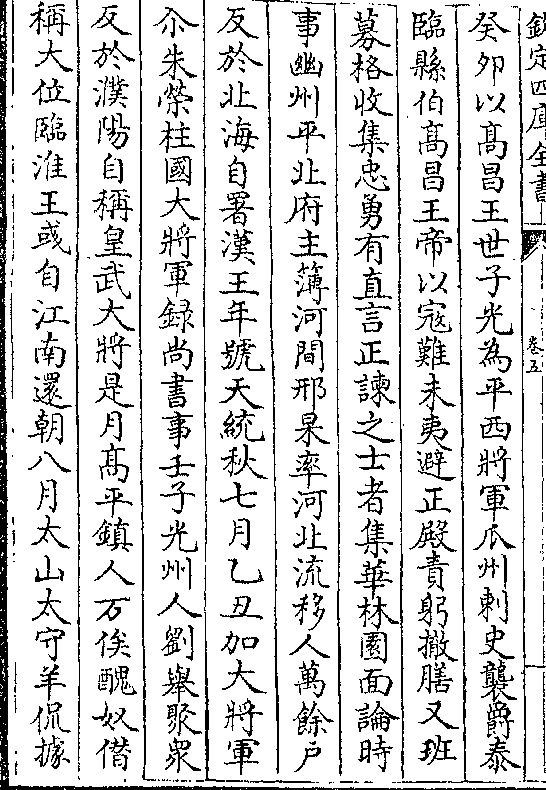 欽定四庫全書
卷五
癸卯以髙昌王世子光為平西將軍瓜州刺史襲爵泰
臨縣伯髙昌王帝以寇難未夷避正殿責躬撤膳又班
募格收集忠勇有直言正諫之士者集華林園面論時
事幽州平北府主簿河間邢杲率河北流移人萬餘戸
反於北海自署漢王年號天統秋七月乙丑加大將軍
尒朱榮柱國大將軍録尚書事壬子光州人劉舉聚衆
反於濮陽自稱皇武大將是月髙平鎮人万俟醜奴僣
稱大位臨淮王彧自江南還朝八月太山太守羊侃據